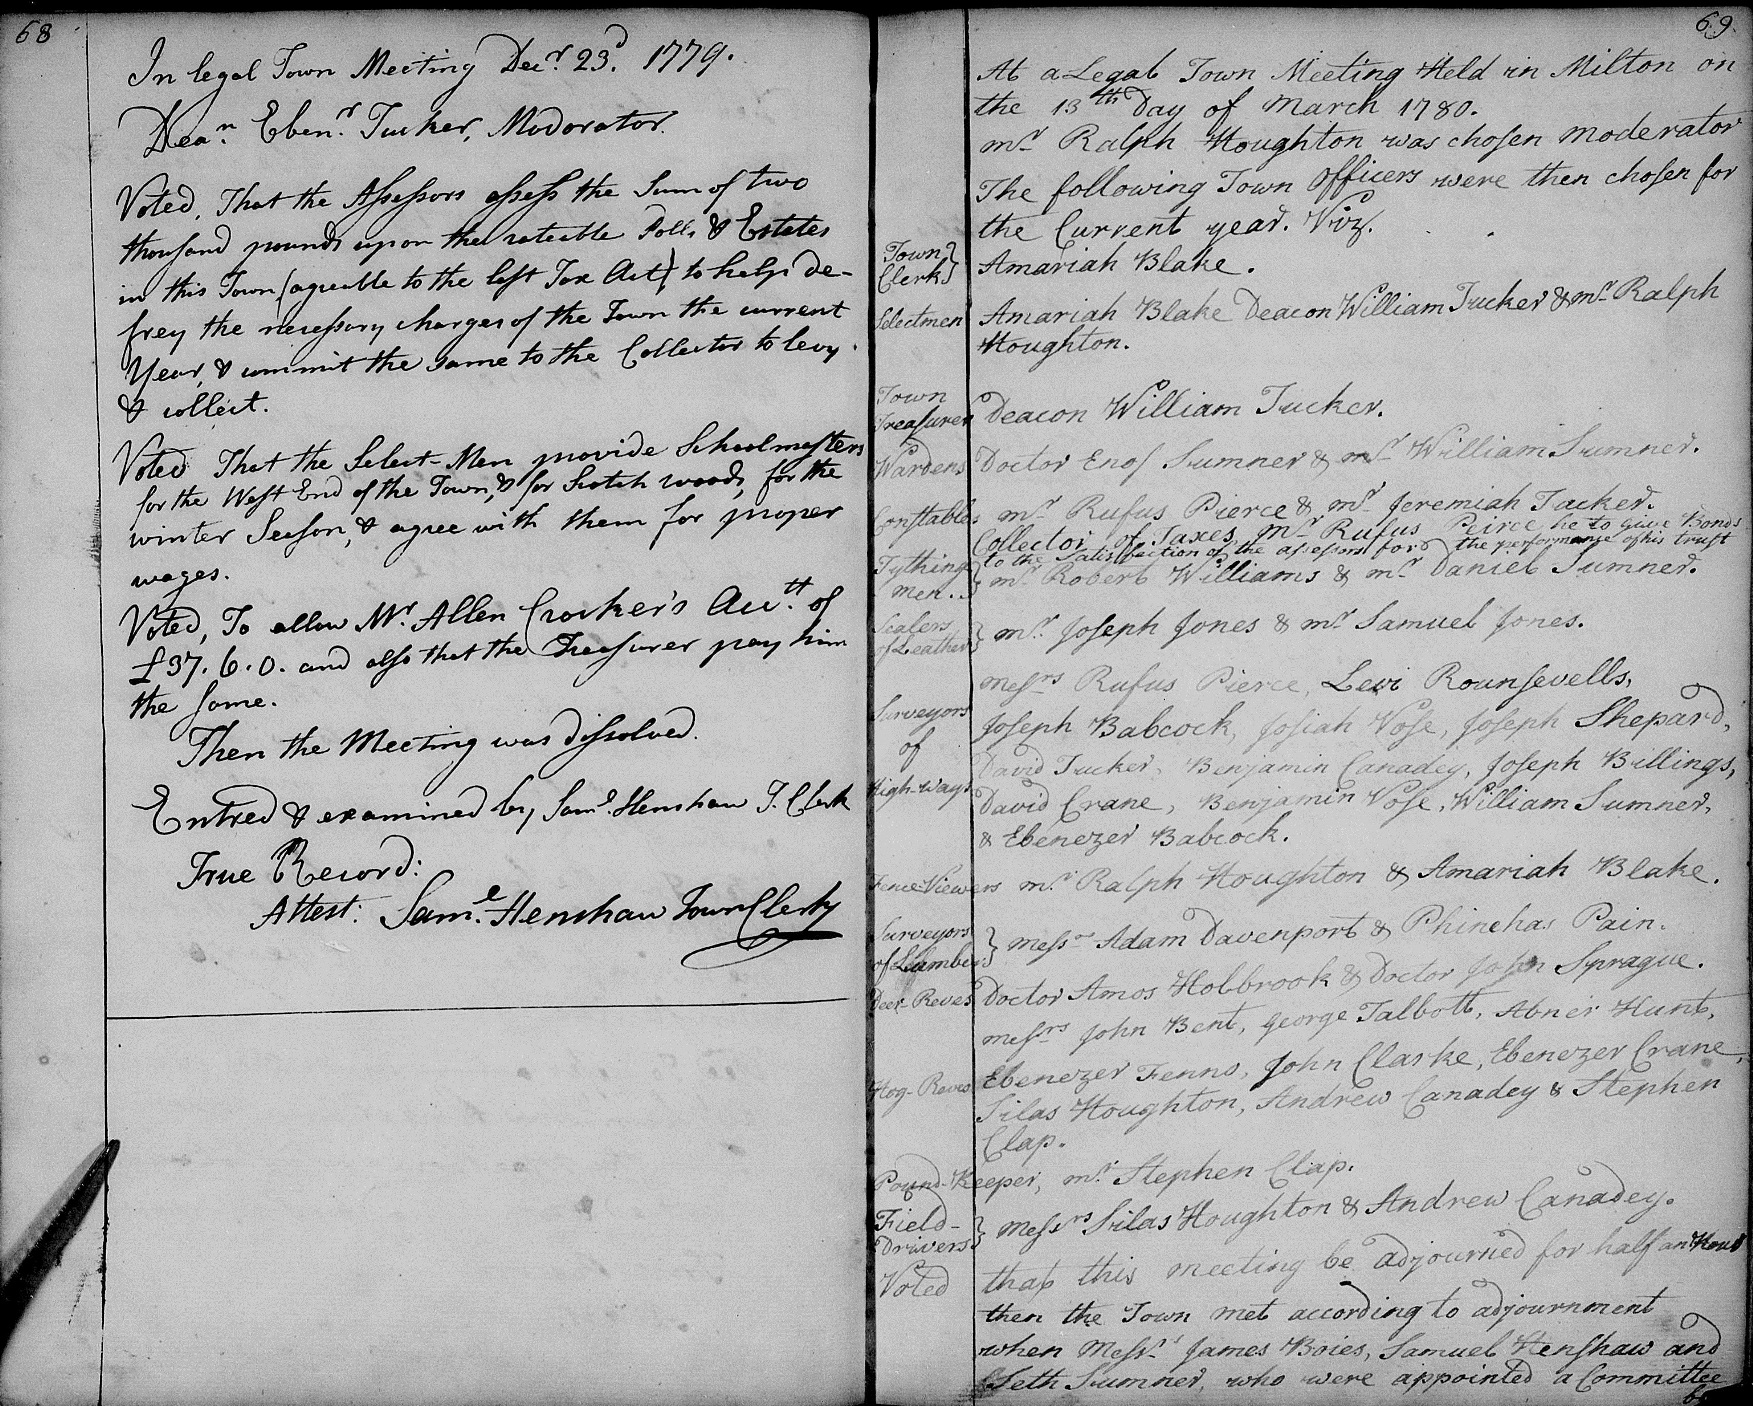 68
In legal Town Meeting Decr. 23d. 1779.
Dean. Ebenr. Tucker, Modorator.
Voted, That the Assessors assess the Sum of two
thousand pounds upon the rateable Polls & Estates
in this Town (agreable to the last Tax Act) to help de-
frey the necessary charges of the Town the current
Year, & commit the same to the Collector to levy
& collect.
Voted That the Select-Men provide Schoolmasters
for the West End of the Town, & for Scotch woods, for the
winter Season, & agree with them for proper
wages.
Voted, To allow Mr. Allen Crocker's Acctt. of
£37.6.0. and also that the Treasurer pay him
the same.
Then the Meeting was dissolved.
Entred & examined by Saml. Henshaw T. Clerk
True Record:
Attest: Saml. Henshaw Town Clerk
69.
At a Legal Town Meeting Held in Milton on
the 13th Day of March 1780.
mr Ralph Houghton was chosen moderator
The following Town officers were then chosen for
the Current year. Viz.
Town Clerk } Amariah Blake.
Selectmen Amariah Blake Deacon William Tucker & mr Ralph
Houghton.
Town Treasurer Deacon William Tucker.
Wardens Doctor Enos Sumner & mr William Sumner.
Constables mr Rufus Pierce & mr Jeremiah Tucker.
Collector of Taxes mr Rufus Peirce he to give Bonds
to the Satisfaction of the assessors for the performance of his trust
Tything men. } mr Robert Williams & mr Daniel Sumner.
Sealers of Leather } mr Joseph Jones & mr Samuel Jones.
messrs Rufus Pierce, Levi Rounsevells,
Surveyors Joseph Babcock, Josiah Vose, Joseph Shepard,
of David Tucker, Benjamin Canadey, Joseph Billings,
High-ways David Crane, Benjamin Vose, William Sumner,
& Ebenezer Babcock.
Fence-Viewers mr. Ralph Houghton & Amariah Blake.
Surveyors of Lumber } messrs Adam Davenport & Phinehas Pain.
Deer-Reves Doctor Amos Holbrook & Doctor John Sprague.
messrs John Bent, George Talbott, Abner Hunt,
Hog-Reves Ebenezer Fenno, John Clarke, Ebenezer Crane,
Silas Houghton, Andrew Canadey & Stephen
Clap.
Pound-Keeper, mr. Stephen Clap.
Field-Drivers } messrs Silas Houghton & Andrew Canadey.
Voted that this meeting be adjourned for half an Hour
then the Town met according to adjournment
when Messrs James Boies, Samuel Henshaw and
Seth Sumner, who were appointed a Committee